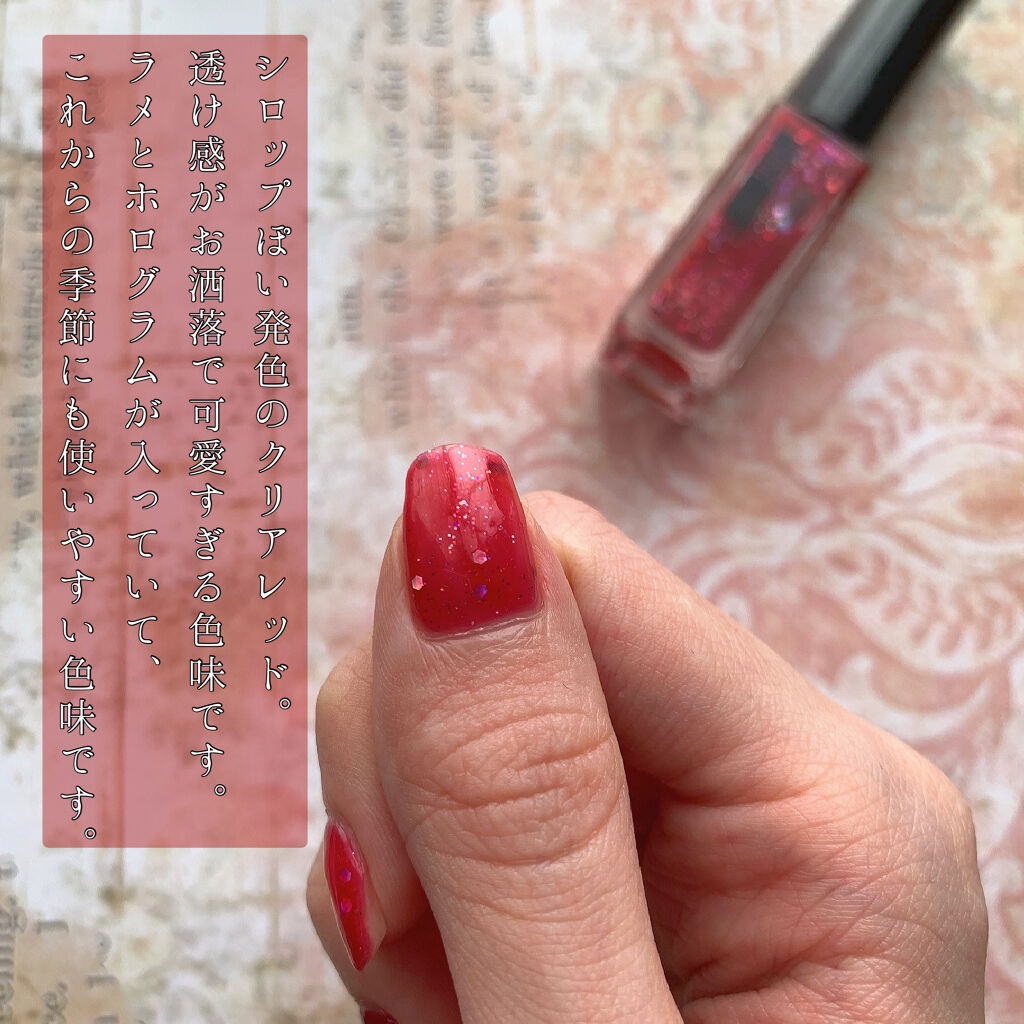 シロップぽい発色のクリアレッド。
透け感がお洒落で可愛すぎる色味です。
ラメとホログラムが入っていて、
これからの季節にも使いやすい色味です。